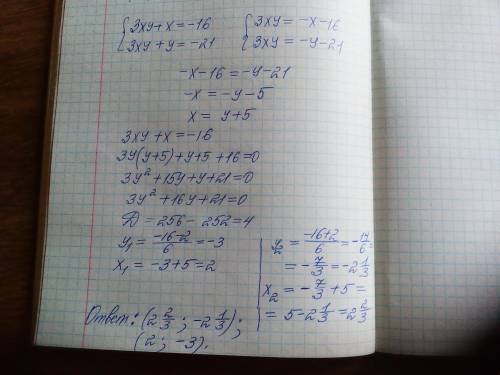 {3xy+x=-16   {3xy=-x-16
{3xy+y=-21   {3xy=-y-21
-x-16=-y-21
-x=-y-5
x= y+5
3xy+x=-16
3y(y+5)+y+5+16=0
3y²+15y+y+21=0
3y²+16y+21=0
D=256-252=4
y₁=(-16-2)/6=-3
x₁=-3+5=2
y₂=(-16+2)/6=-14/6=
=-7/3=-2 1/3
x₂=-7/3+5=
=5-2 1/3=2 2/3
Ответ: (2 2/3; -2 1/3);
(2; -3).